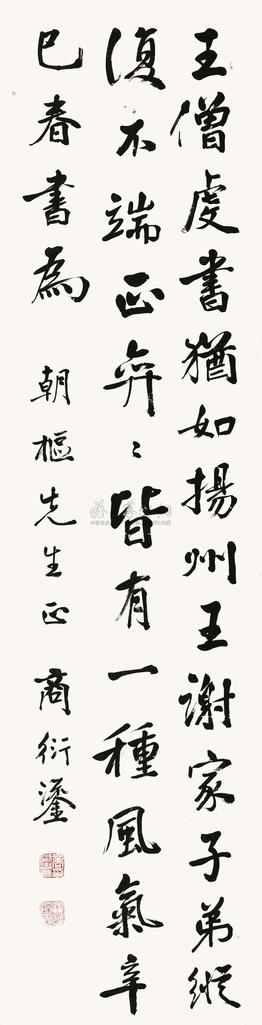 王僧虔書猶如揚州王謝家子弟縱
復不端正弈〻皆有一種風氣辛
巳春書為 朝樞先生正 商衍鎏